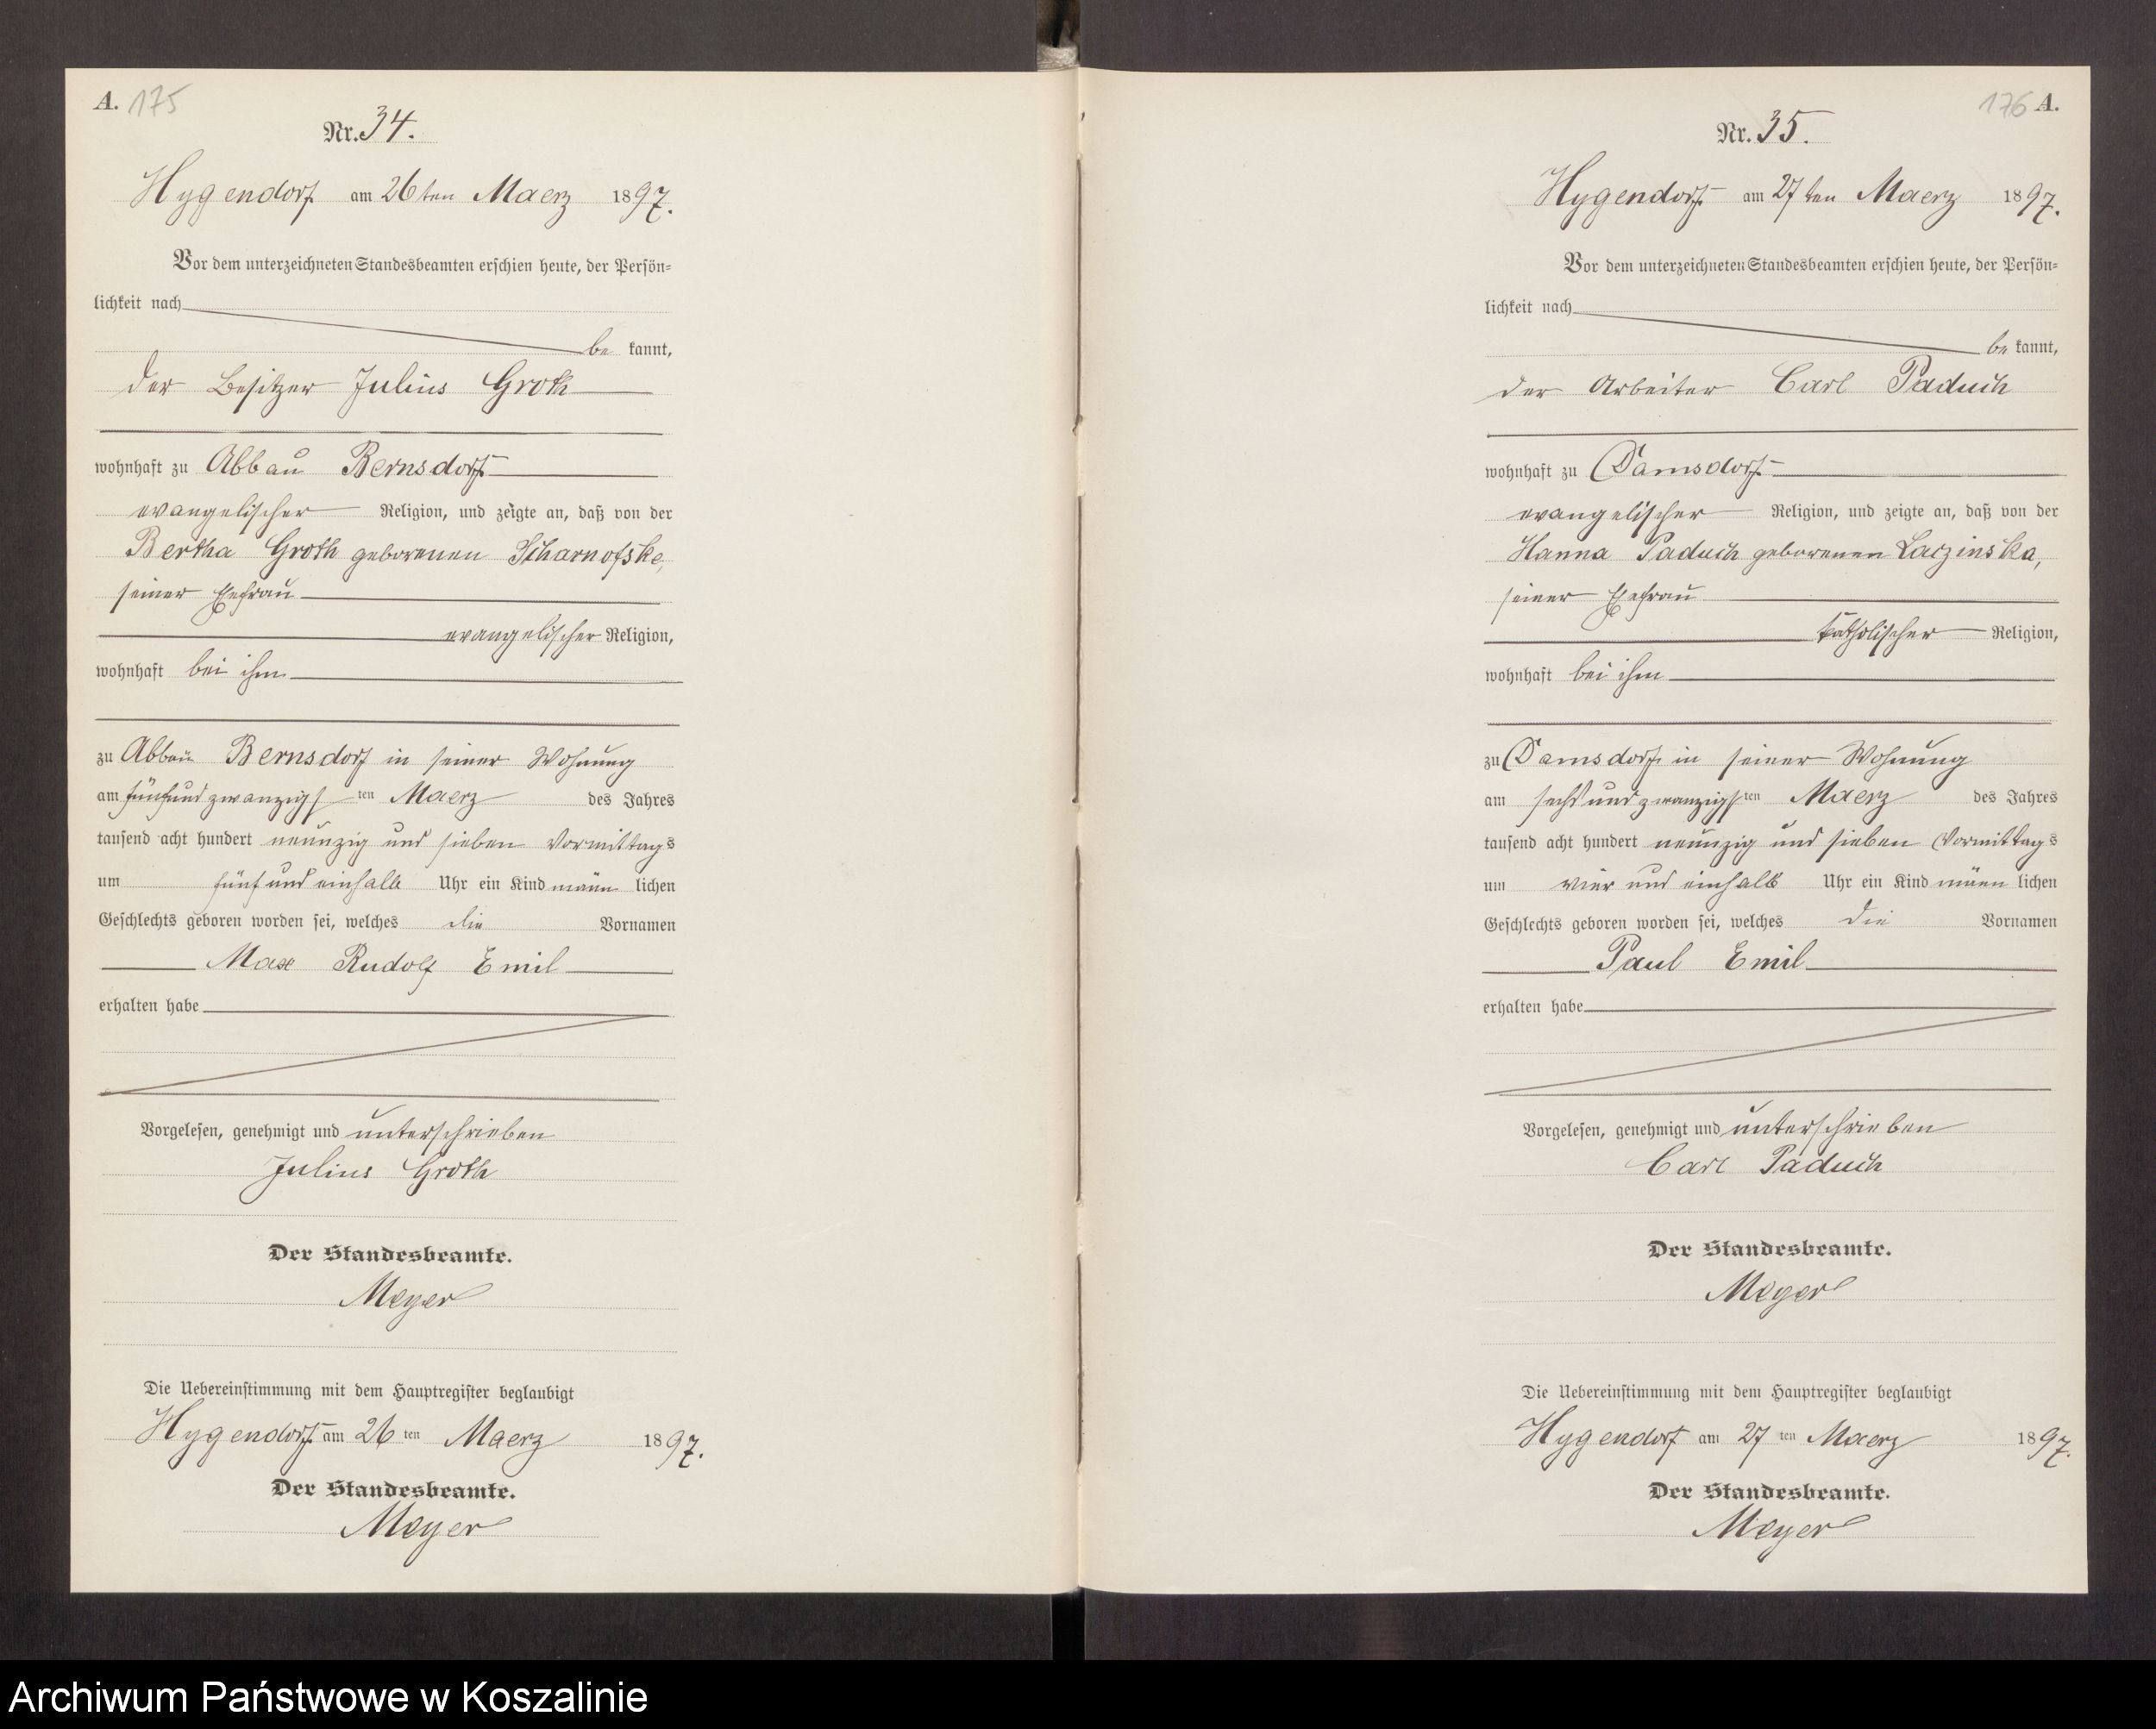 A. 175
Nr. 34.
Hygendorf am 26ten Maerz 1897.
Vor dem unterzeichneten Standesbeamten erschien heute, der Persön-
lichkeit nach
be kannt,
der Besitzer Julius Groth
wohnhaft zu Abbau Bernsdorf
evangelischer Religion, und zeigte an, daß von der
Bertha Groth geborenen Scharnofske,
seiner Ehefrau
evangelischer Religion,
wohnhaft bei ihm
zu Abbau Bernsdorf in seiner Wohnung
am fünfundzwanzigsten Maerz des Jahres
tausend acht hundert neunzig und sieben Vormittags
um fünf und einhalb Uhr ein Kind männ lichen
Geschlechts geboren worden sei, welches die Vornamen
Max Rudolf Emil
erhalten habe
Vorgelesen, genehmigt und unterschrieben
Julius Groth
Der Standesbeamte.
Meyer
Die Uebereinstimmung mit dem Hauptregister beglaubigt
Hygendorf am 26 ten Maerz 1897.
Der Standesbeamte.
Meyer
176 A.
Nr. 35.
Hygendorf am 27ten Maerz 1897.
Vor dem unterzeichneten Standesbeamten erschien heute, der Persön-
lichkeit nach
be kannt,
der Arbeiter Carl Paduch
wohnhaft zu Damsdorf
evangelischer Religion, und zeigte an, daß von der
Hanna Paduch geborenen Laczinska,
seiner Ehefrau
katholischer Religion,
wohnhaft bei ihm
zu Damsdorf in seiner Wohnung
am sechsundzwanzigsten Maerz des Jahres
tausend acht hundert neunzig und sieben Vormittags
um vier und einhalb Uhr ein Kind männ lichen
Geschlechts geboren worden sei, welches die Vornamen
Paul Emil
erhalten habe
Vorgelesen, genehmigt und unterschrieben
Carl Paduch
Der Standesbeamte.
Meyer
Die Uebereinstimmung mit dem Hauptregister beglaubigt
Hygendorf am 27 ten Maerz 1897.
Der Standesbeamte.
Meyer
Archiwum Państwowe w Koszalinie